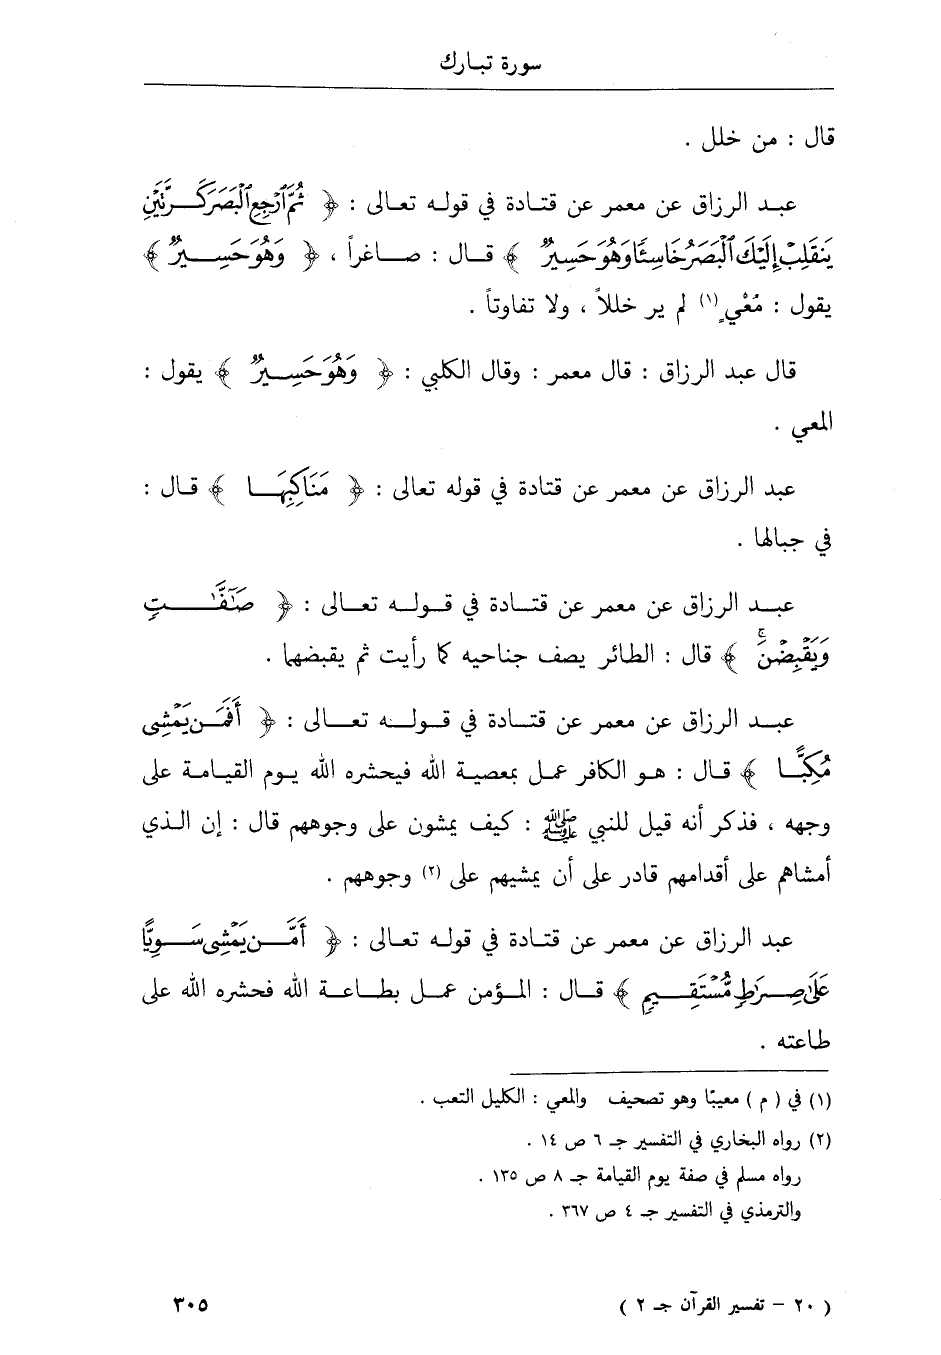 سورة تبارك
قال : من خلل .
عبد الرزاق عن معمر عن قتادة في قوله تعالى : ﴿ ثُمَّ ٱرْجِعِ ٱلْبَصَرَ كَرَّتَيْنِ
يَنقَلِبْ إِلَيْكَ ٱلْبَصَرُ خَاسِئًا وَهُوَ حَسِيرٌ ﴾ قال : صاغراً ، ﴿ وَهُوَ حَسِيرٌ ﴾
يقول : مُعْيٍ (١) لم ير خللاً ، ولا تفاوتاً .
قال عبد الرزاق : قال معمر : وقال الكلبي : ﴿ وَهُوَ حَسِيرٌ ﴾ يقول :
المعي .
عبد الرزاق عن معمر عن قتادة في قوله تعالى : ﴿ مَنَاكِبِهَا ﴾ قال :
في جبالها .
عبد الرزاق عن معمر عن قتادة في قوله تعالى : ﴿ صَٰٓفَّٰتٍ
وَيَقْبِضْنَۚ ﴾ قال : الطائر يصف جناحيه كما رأيت ثم يقبضها .
عبد الرزاق عن معمر عن قتادة في قوله تعالى : ﴿ أَفَمَن يَمْشِى
مُكِبًّا ﴾ قال : هو الكافر عمل بمعصية الله فيحشره الله يوم القيامة على
وجهه ، فذكر أنه قيل للنبي ﷺ : كيف يمشون على وجوههم قال : إن الذي
أمشاهم على أقدامهم قادر على أن يمشيهم على (٢) وجوههم .
عبد الرزاق عن معمر عن قتادة في قوله تعالى : ﴿ أَمَّن يَمْشِى سَوِيًّا
عَلَىٰ صِرَٰطٍ مُّسْتَقِيمٍ ﴾ قال : المؤمن عمل بطاعة الله فحشره الله على
طاعته .
(١) في ( م ) معيبًا وهو تصحيف والمعي : الكليل التعب .
(٢) رواه البخاري في التفسير جـ ٦ ص ١٤ .
رواه مسلم في صفة يوم القيامة جـ ٨ ص ١٣٥ .
والترمذي في التفسير جـ ٤ ص ٣٦٧ .
( ٢٠ – تفسير القرآن جـ ٢ ) ٣٠٥